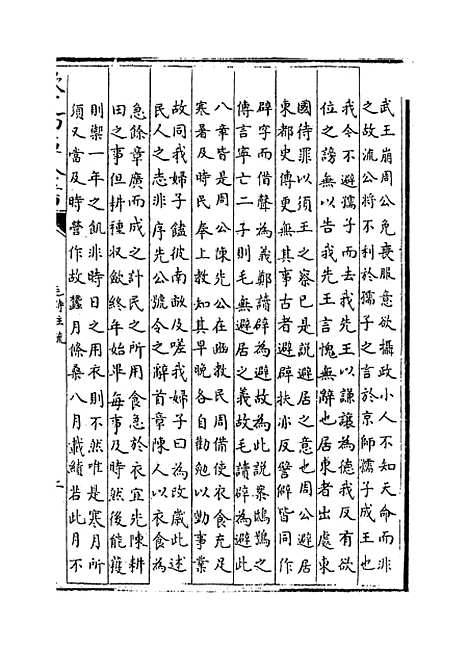 武王崩周公免喪服意欲攝政小人不知天命而非
之故流公將不利於孺子之言於京師孺子成王也
我今不避孺子而去我先王以謙讓為德我反有欲
位之謗無以告我先王言愧無辭也居東者出處東
國待罪以須王之察已是說避居之意也周公避居
東都史傳更無其事古者避辟扶亦反譬僻皆同作
辟字而借聲為義鄭讀辟為避故為此說案鴟鴞之
傳言寧亡二子則毛無避居之義故毛讀辟為避此
八章皆是周公陳先公在豳教民周備使衣食充足
寒暑及時民奉上教知其早晚各自勸勉以勤事業
故同我婦子饁彼南畝及嗟我婦子曰為改歲此述
民人之志非序先公號令之辭首章陳人以衣食為
急餘章廣而成之計民之所用食急於衣宜先陳耕
田之事但耕種收斂終年始畢每事及時然後能穫
則禦一年之飢非時日之用衣則不然唯是寒月所
須又當及時營作故蠶月條桑八月載績若此月不
毛詩注疏
二